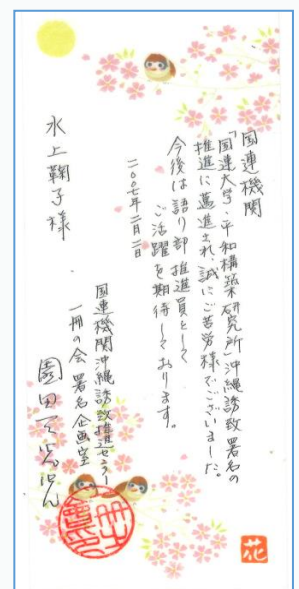 国連機関
「国連大学・平和構築研究所」沖縄誘致署名の
推進に邁進され、誠にご苦労様でございました。
今後は語り部推進員として
ご活躍を期待しております。
二〇〇七年二月二日
国連機関沖縄誘致推進センター
一冊の会 署名企画室
園田天光光
水上鞠子様
花